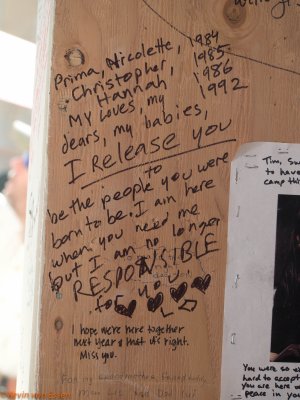 Prima, Nicolette, 1984
Christopher, 1985
Hannah, 1986
My loves, my 1992
dears, my babies,
I Release you
to
be the people you were
born to be. I am here
when you need me
but I am no longer
RESPONSIBLE
for you
I hope we're here together
next year & that it's right.
Miss you.
Tim,
to have
camp th
You were so
hard to accept
you are here
peace in yo